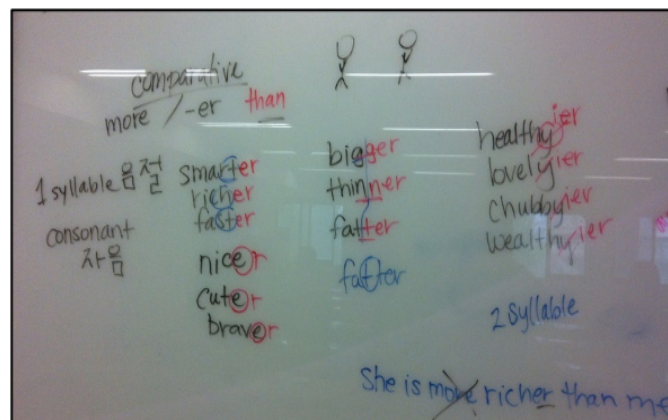 comparative
more / -er than
1 syllable 음절
consonant
자음
smarter
richer
faster
nicer
cuter
braver
bigger
thinner
fatter
fatter
healthyier
lovelyier
chubbyier
wealthyier
2 syllable
She is more richer than me